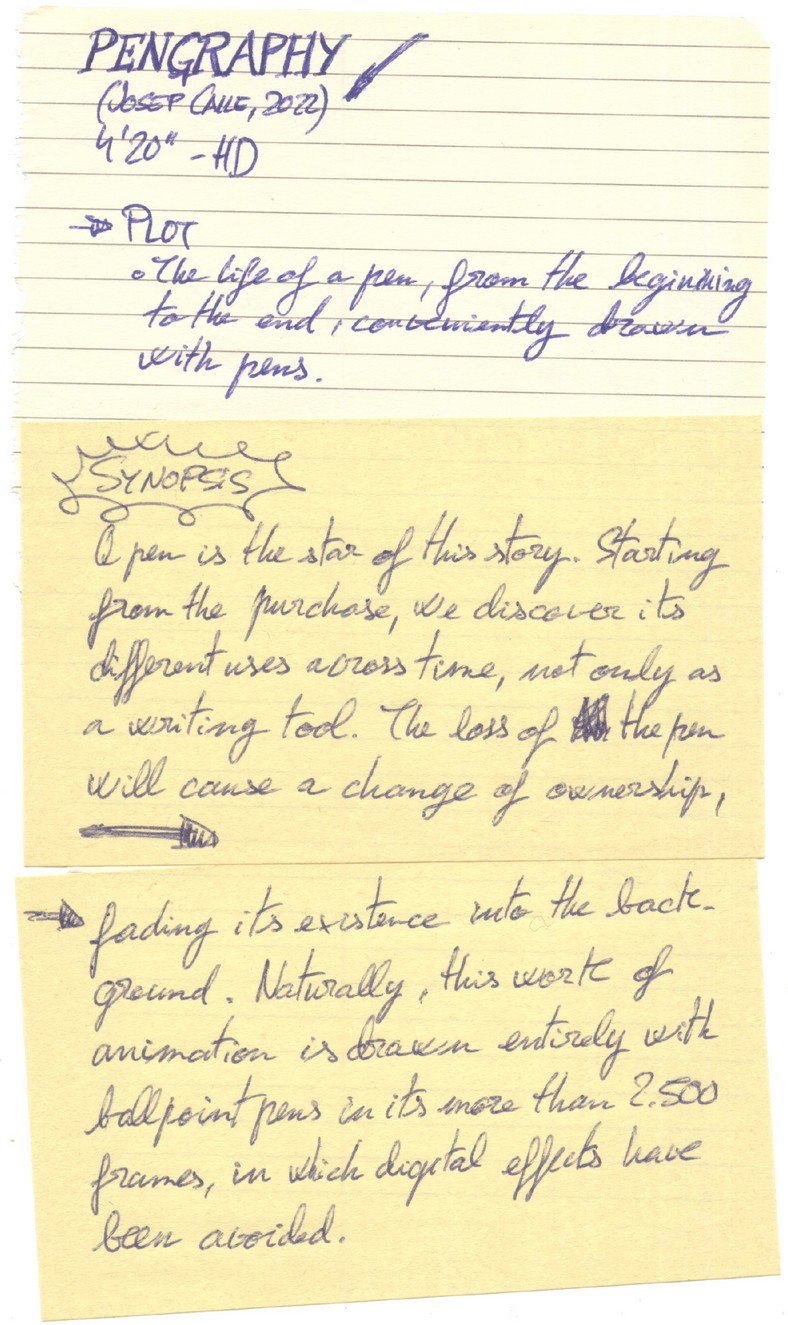 PENGRAPHY
(JOSEP CALLE, 2022)
4'20" - HD
→ PLOT
• The life of a pen, from the beginining
to the end, conveniently drawn
with pens.
SYNOPSIS
A pen is the star of this story. Starting
from the purchase, we discover its
different uses across time, not only as
a writing tool. The loss of the pen
will cause a change of ownership,
→
→ fading its existence into the back-
ground. Naturally, this work of
animation is drawn entirely with
ballpoint pens in its more than 2.500
frames, in which digital effects have
been avoided.